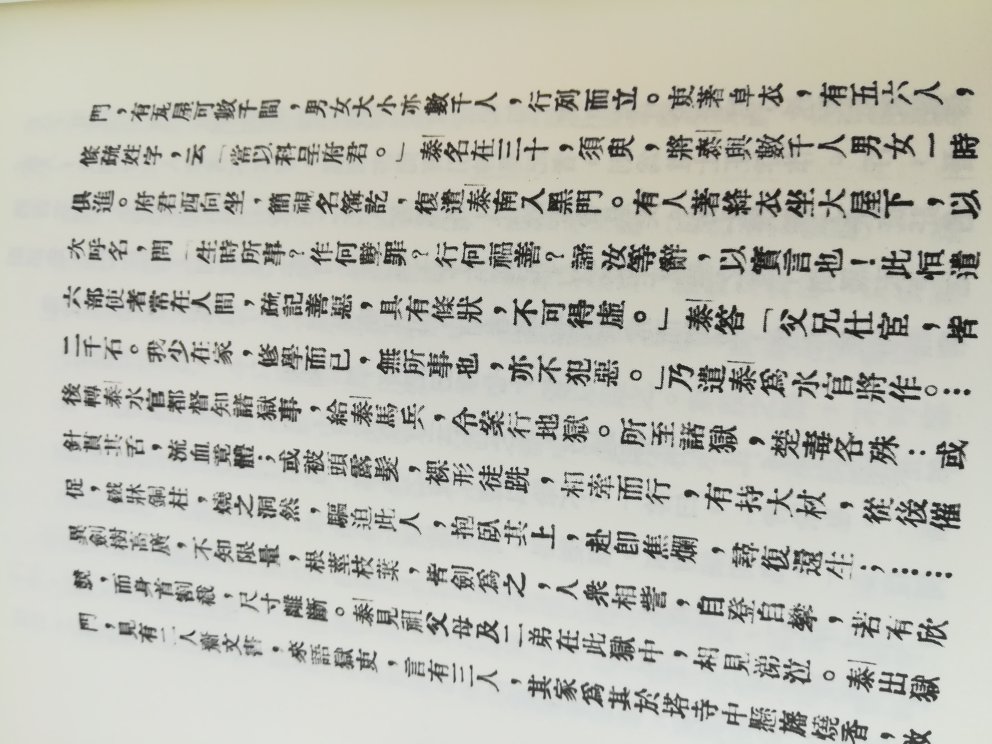 門，有瓦屋可數千間，男女大小亦數千人，行列而立。吏著皁衣，有五六人，
條疏姓字，云「當以科呈府君。」泰名在三十，須臾，將泰與數千人男女一時
俱進。府君西向坐，簡視名簿訖，復遣泰南入黑門。有人著絳衣坐大屋下，以
次呼名，問「生時所事？作何孽罪？行何福善？諦汝等辭，以實言也！此恒遣
六部使者常在人間，疏記善惡，具有條狀，不可得虛。」泰答「父兄仕宦，皆
二千石。我少在家，修學而已，無所事也，亦不犯惡。」乃遣泰爲水官將作。…
後轉泰水官都督知諸獄事，給泰馬兵，令案行地獄。所至諸獄，楚毒各殊：或
針貫其舌，流血竟體；或被頭露髮，裸形徒跣，相牽而行，有持大杖，從後催
促，鐵牀銅柱，燒之洞然，驅迫此人，抱臥其上，赴卽焦爛，尋復還生；……
異劍樹高廣，不知限量，根莖枝葉，皆劍爲之，人衆相訾，自登自攀，若有欣
競，而身首割截，尺寸離斷。泰見祖父母及二弟在此獄中，相見涕泣。泰出獄
門，見有二人齎文書，來語獄吏，言有三人，其家爲其於塔寺中懸旛燒香，救